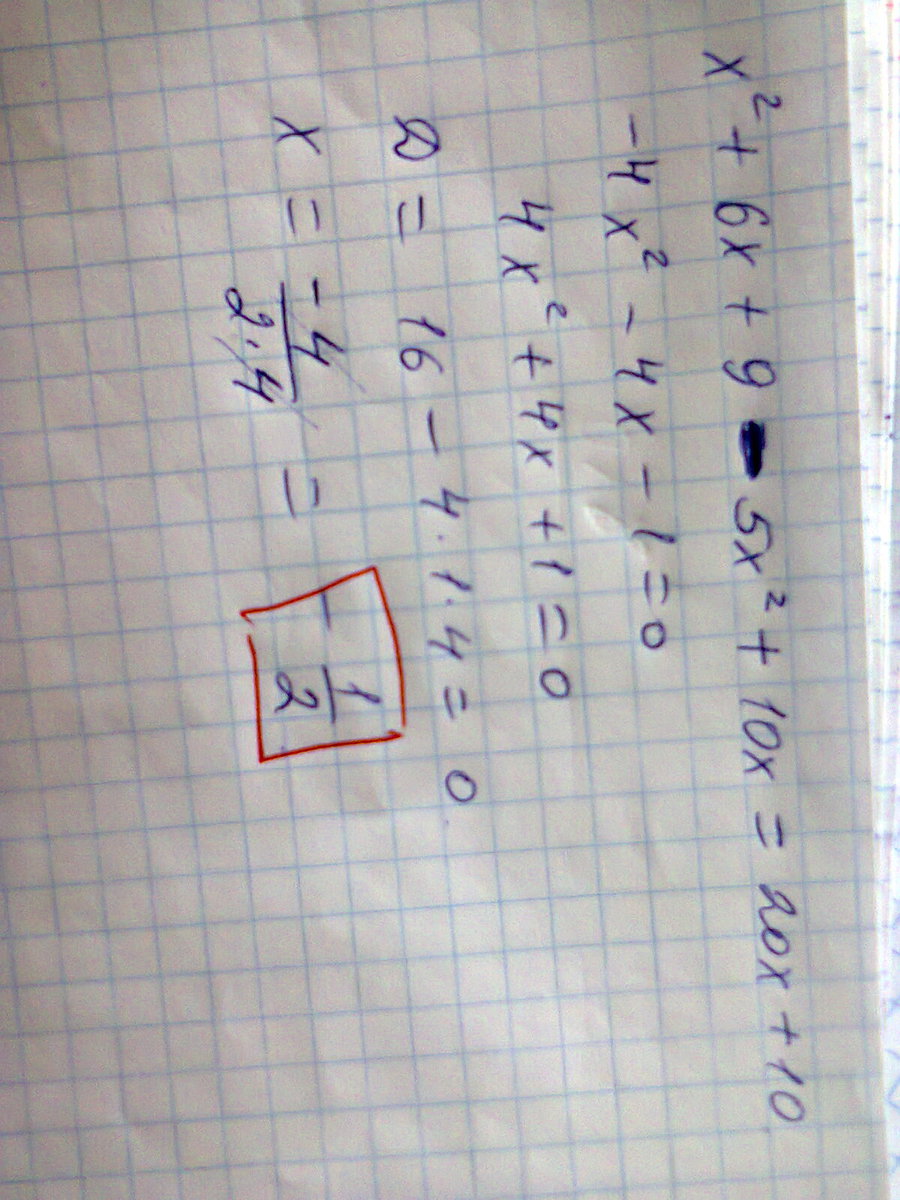 x² + 6x + 9 - 5x² + 10x = 20x + 10
-4x² - 4x - 1 = 0
4x² + 4x + 1 = 0
D = 16 - 4·1·4 = 0
x = -4/2·4 = -1/2